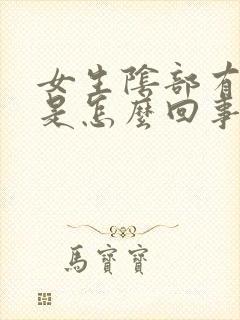 女生陰部有
是怎麼回事
馬寶寶